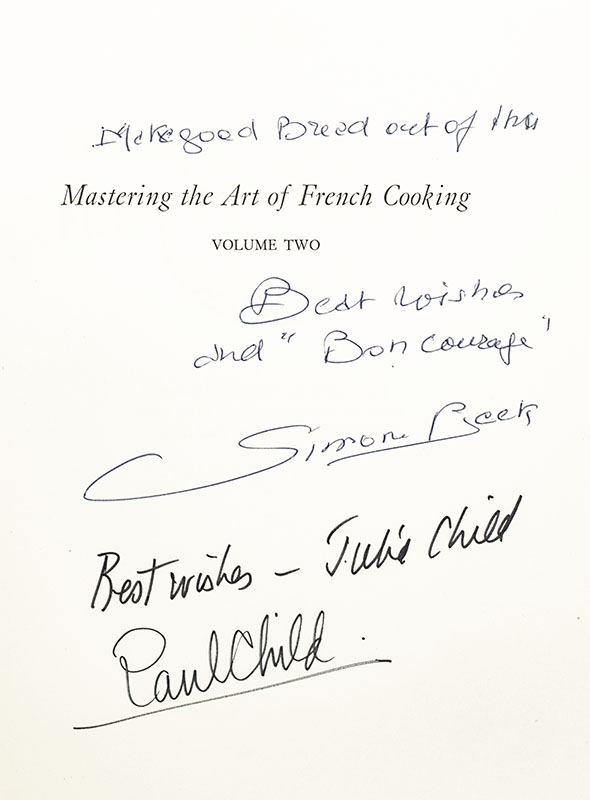 Make good Bread out of this
Mastering the Art of French Cooking
VOLUME TWO
Best wishes
and "Bon courage"
Simone Beck
Best wishes – Julia Child
Paul Child